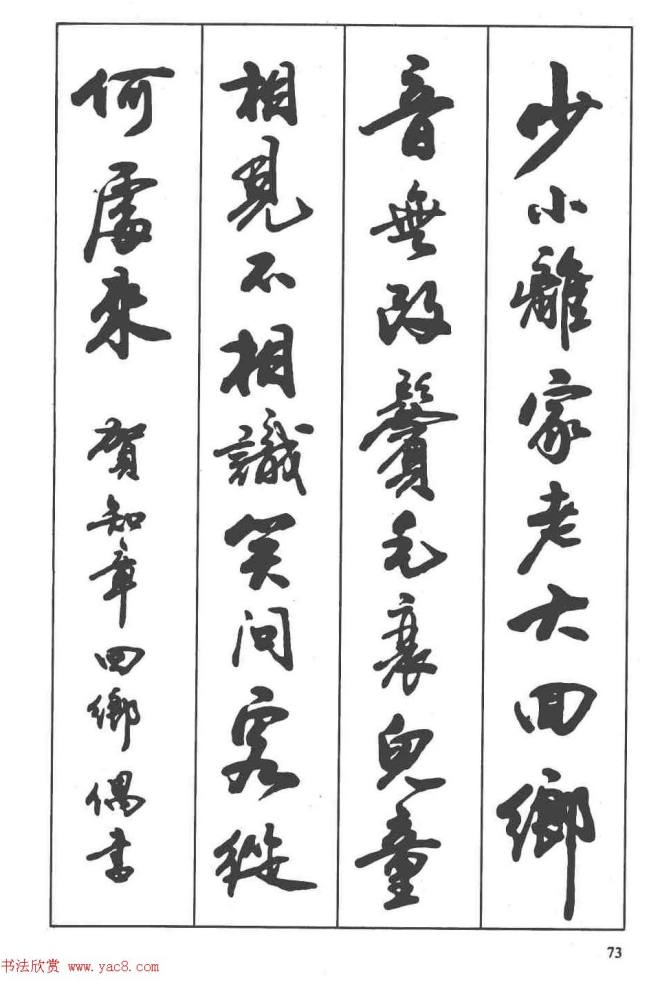 少小離家老大回鄉
音無改鬢毛衰兒童
相見不相識笑問客從
何處來 賀知章回鄉偶書
73
书法欣赏 www.yac8.com